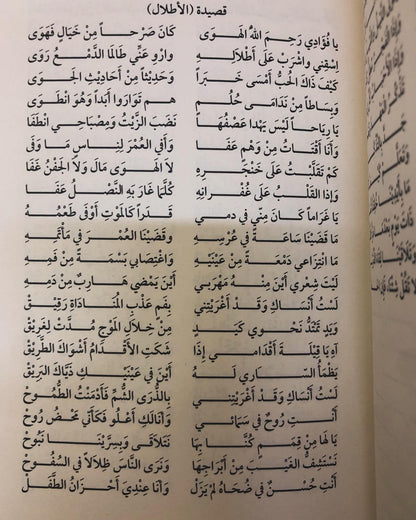 قصيدة (الأطلال)
يا فُؤادِي رَحِمَ اللهُ الهَوَى كَانَ صَرْحاً مِنْ خَيَالٍ فَهَوَى
اِسْقِنِي واشْرَبْ عَلَى أَطْلَالِهِ وارْوِ عَنِّي طَالَمَا الدَّمْعُ رَوَى
كَيْفَ ذَاكَ الحُبُّ أَمْسَى خَبَراً وَحَدِيثاً مِنْ أَحَادِيثِ الجَوَى
وَبِسَاطاً مِنْ نَدَامَى حُلُمٍ هم تَوَارَوا أَبَداً وهُوَ انْطَوَى
يَا رِيَاحاً لَيْسَ يَهْدَا عَصْفُهَا نَضَبَ الزَّيْتُ وَمِصْبَاحِي انْطَفَا
وَأَنَا أَقْتَاتُ مِنْ وَهْمٍ عَفَا وَأَفِي العُمْرَ لِنِاسٍ مَا وَفَى
كَمْ تَقَلَّبْتُ عَلَى خَنْجَرِهِ لَا الهَوَى مَالَ وَلَا الجَفْنُ غَفَا
وَإذا القَلْبُ عَلَى غُفْرَانِهِ كُلَّمَا غَارَ بِهِ النَّصْلُ عَفَا
يَا غَرَاماً كَانَ مِنِّي في دمي قَدَراً كَالمَوْتِ أَوْفَى طَعْمُهُ
مَا قَضَيْنَا سَاعَةً في عُرْسِهِ وقَضَيْنَا العُمْرَ في مَأْتَمِهِ
مَا انْتِزَاعِي دَمْعَةً مِنْ عَيْنَيْهِ وَاغْتِصَابِي بَسْمَةً مِنْ فَمِهِ
لَيْتَ شِعْرِي أَيْنَ مِنْهُ مَهْرَبِي أَيْنَ يَمْضِي هَارِبٌ مِنْ دَمِهِ
لَسْتُ أَنْسَاكِ وَقَدْ أَغْرَيْتِنِي بِفَمٍ عَذْبِ المُنَادَاةِ رَقِيْقْ
وَيَدٍ تَمْتَدُّ نَحْوِي كَيَدٍ مِنْ خِلَالِ المَوْجِ مُدَّتْ لِغَرِيْقْ
آهِ يَا قِبْلَةَ أَقْدَامِي إِذَا شَكَتِ الأَقْدَامُ أَشْوَاكَ الطَّرِيْقْ
يَظْمَأُ السَّارِي لَهُ أَيْنَ في عَيْنَيْكِ ذَيَّاكَ البَرِيْقْ
لَسْتُ أَنْسَاكِ وَقَدْ أَغْرَيْتِنِي بِالذُّرَى الشُّمِّ فَأَدْمَنْتُ الطُّمُوحْ
أَنْتِ رُوحٌ في سَمَائِي وَأَنَا لَكِ أَعْلُو فَكَأَنِّي مَحْضُ رُوحْ
يَا لَهَا مِنْ قِمَمٍ كُنَّا بِهَا نَتَلَاقَى وَبِسِرَّيْنَا نَبُوحْ
نَسْتَشِفُّ الغَيْبَ مِنْ أَبْرَاجِهَا وَنَرَى النَّاسَ ظِلَالاً في السُفُوحْ
أَنْتِ حُسْنٌ في ضُحَاهُ لَمْ يَزَلْ وَأَنَا عِنْدِيَ أَحْزَانُ الطَّفَلْ